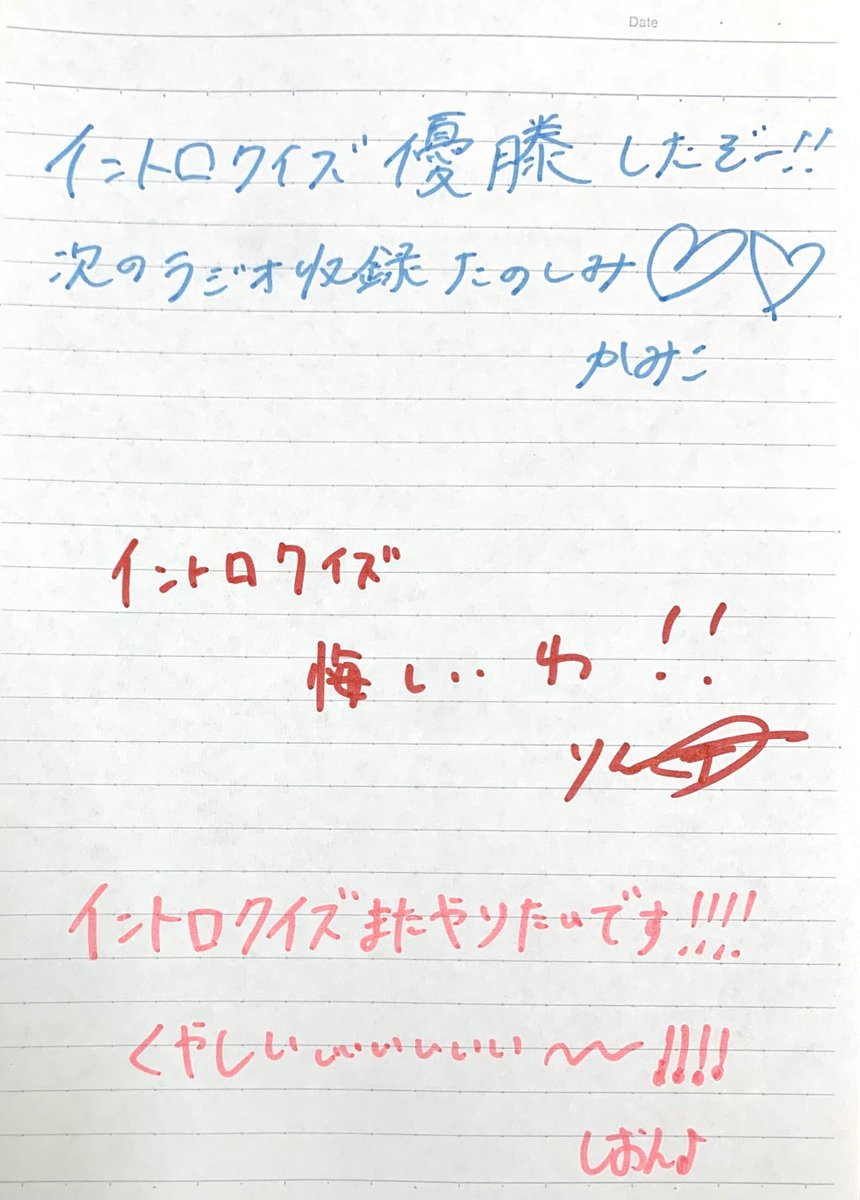 Date
イントロクイズ優勝したぞー!!
次のラジオ収録たのしみ♡♡
かみこ
イントロクイズ
悔しいわ!!
りん
イントロクイズまたやりたいです!!!!
くやしいぃぃぃぃぃぃ〜〜!!!!
しおん♪